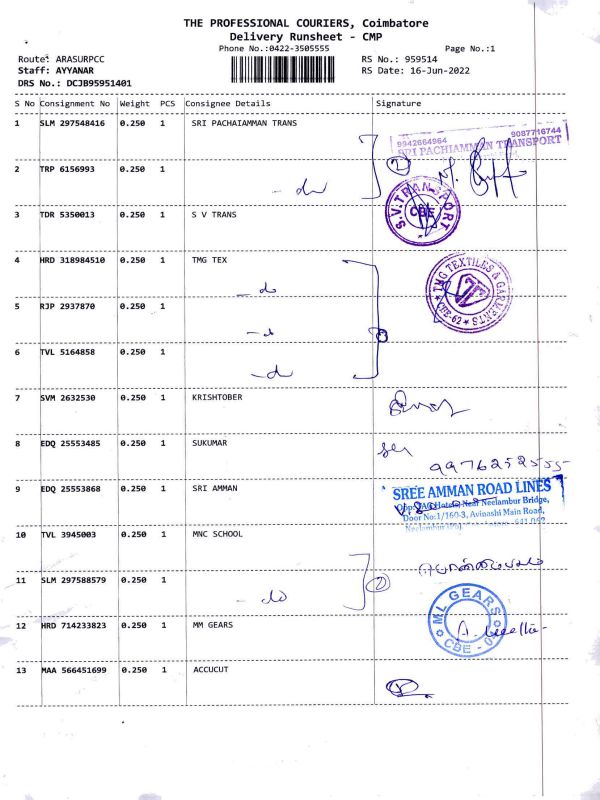 THE PROFESSIONAL COURIERS, Coimbatore
Delivery Runsheet - CMP
Phone No.:0422-3505555
Page No.:1
Route: ARASURPCC
RS No.: 959514
Staff: AYYANAR
RS Date: 16-Jun-2022
DRS No.: DCJB95951401
S No Consignment No Weight PCS Consignee Details Signature
1 SLM 297548416 0.250 1 SRI PACHAIAMMAN TRANS
9942664964 9087716744
SRI PACHIAMMAN TRANSPORT
2 TRP 6156993 0.250 1 - do
2
3 TDR 5350013 0.250 1 S V TRANS
S.V.TRANSPORT
CBE
4 HRD 318984510 0.250 1 TMG TEX
- do
TMG TEXTILES & GARMENTS
CBE-62
5 RJP 2937870 0.250 1
- do
6 TVL 5164858 0.250 1
- do
7 SVM 2632530 0.250 1 KRISHTOBER
8 EDQ 25553485 0.250 1 SUKUMAR
9976252555
9 EDQ 25553868 0.250 1 SRI AMMAN
SREE AMMAN ROAD LINES
Near Neelambur Bridge,
Door No:1/160-3, Avinashi Main Road,
10 TVL 3945003 0.250 1 MNC SCHOOL
11 SLM 297588579 0.250 1
- do
2
12 HRD 714233823 0.250 1 MM GEARS
ML GEARS
CBE
13 MAA 566451699 0.250 1 ACCUCUT